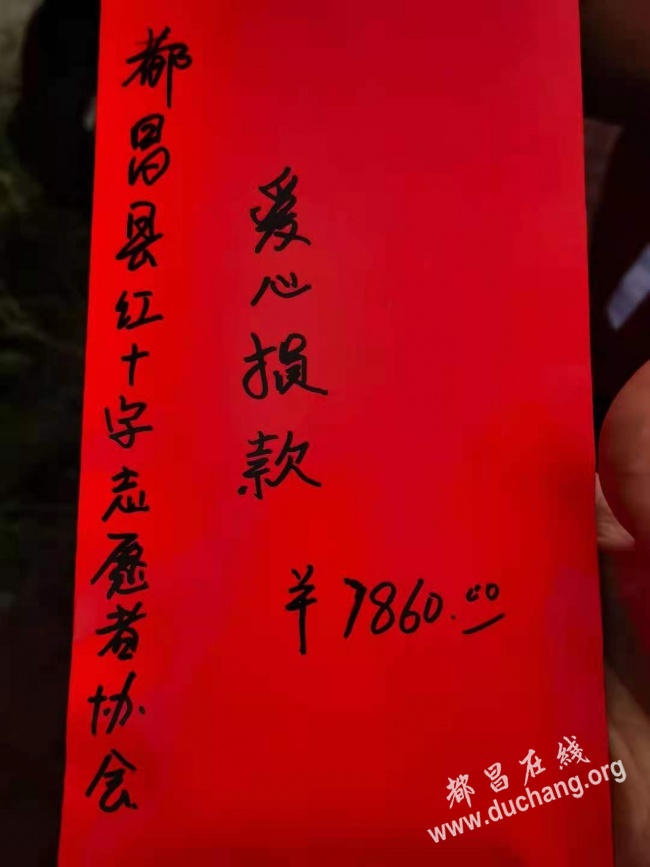 都昌县红十字志愿者协会
爱心捐款
¥7860.00
都昌在线
www.duchang.org